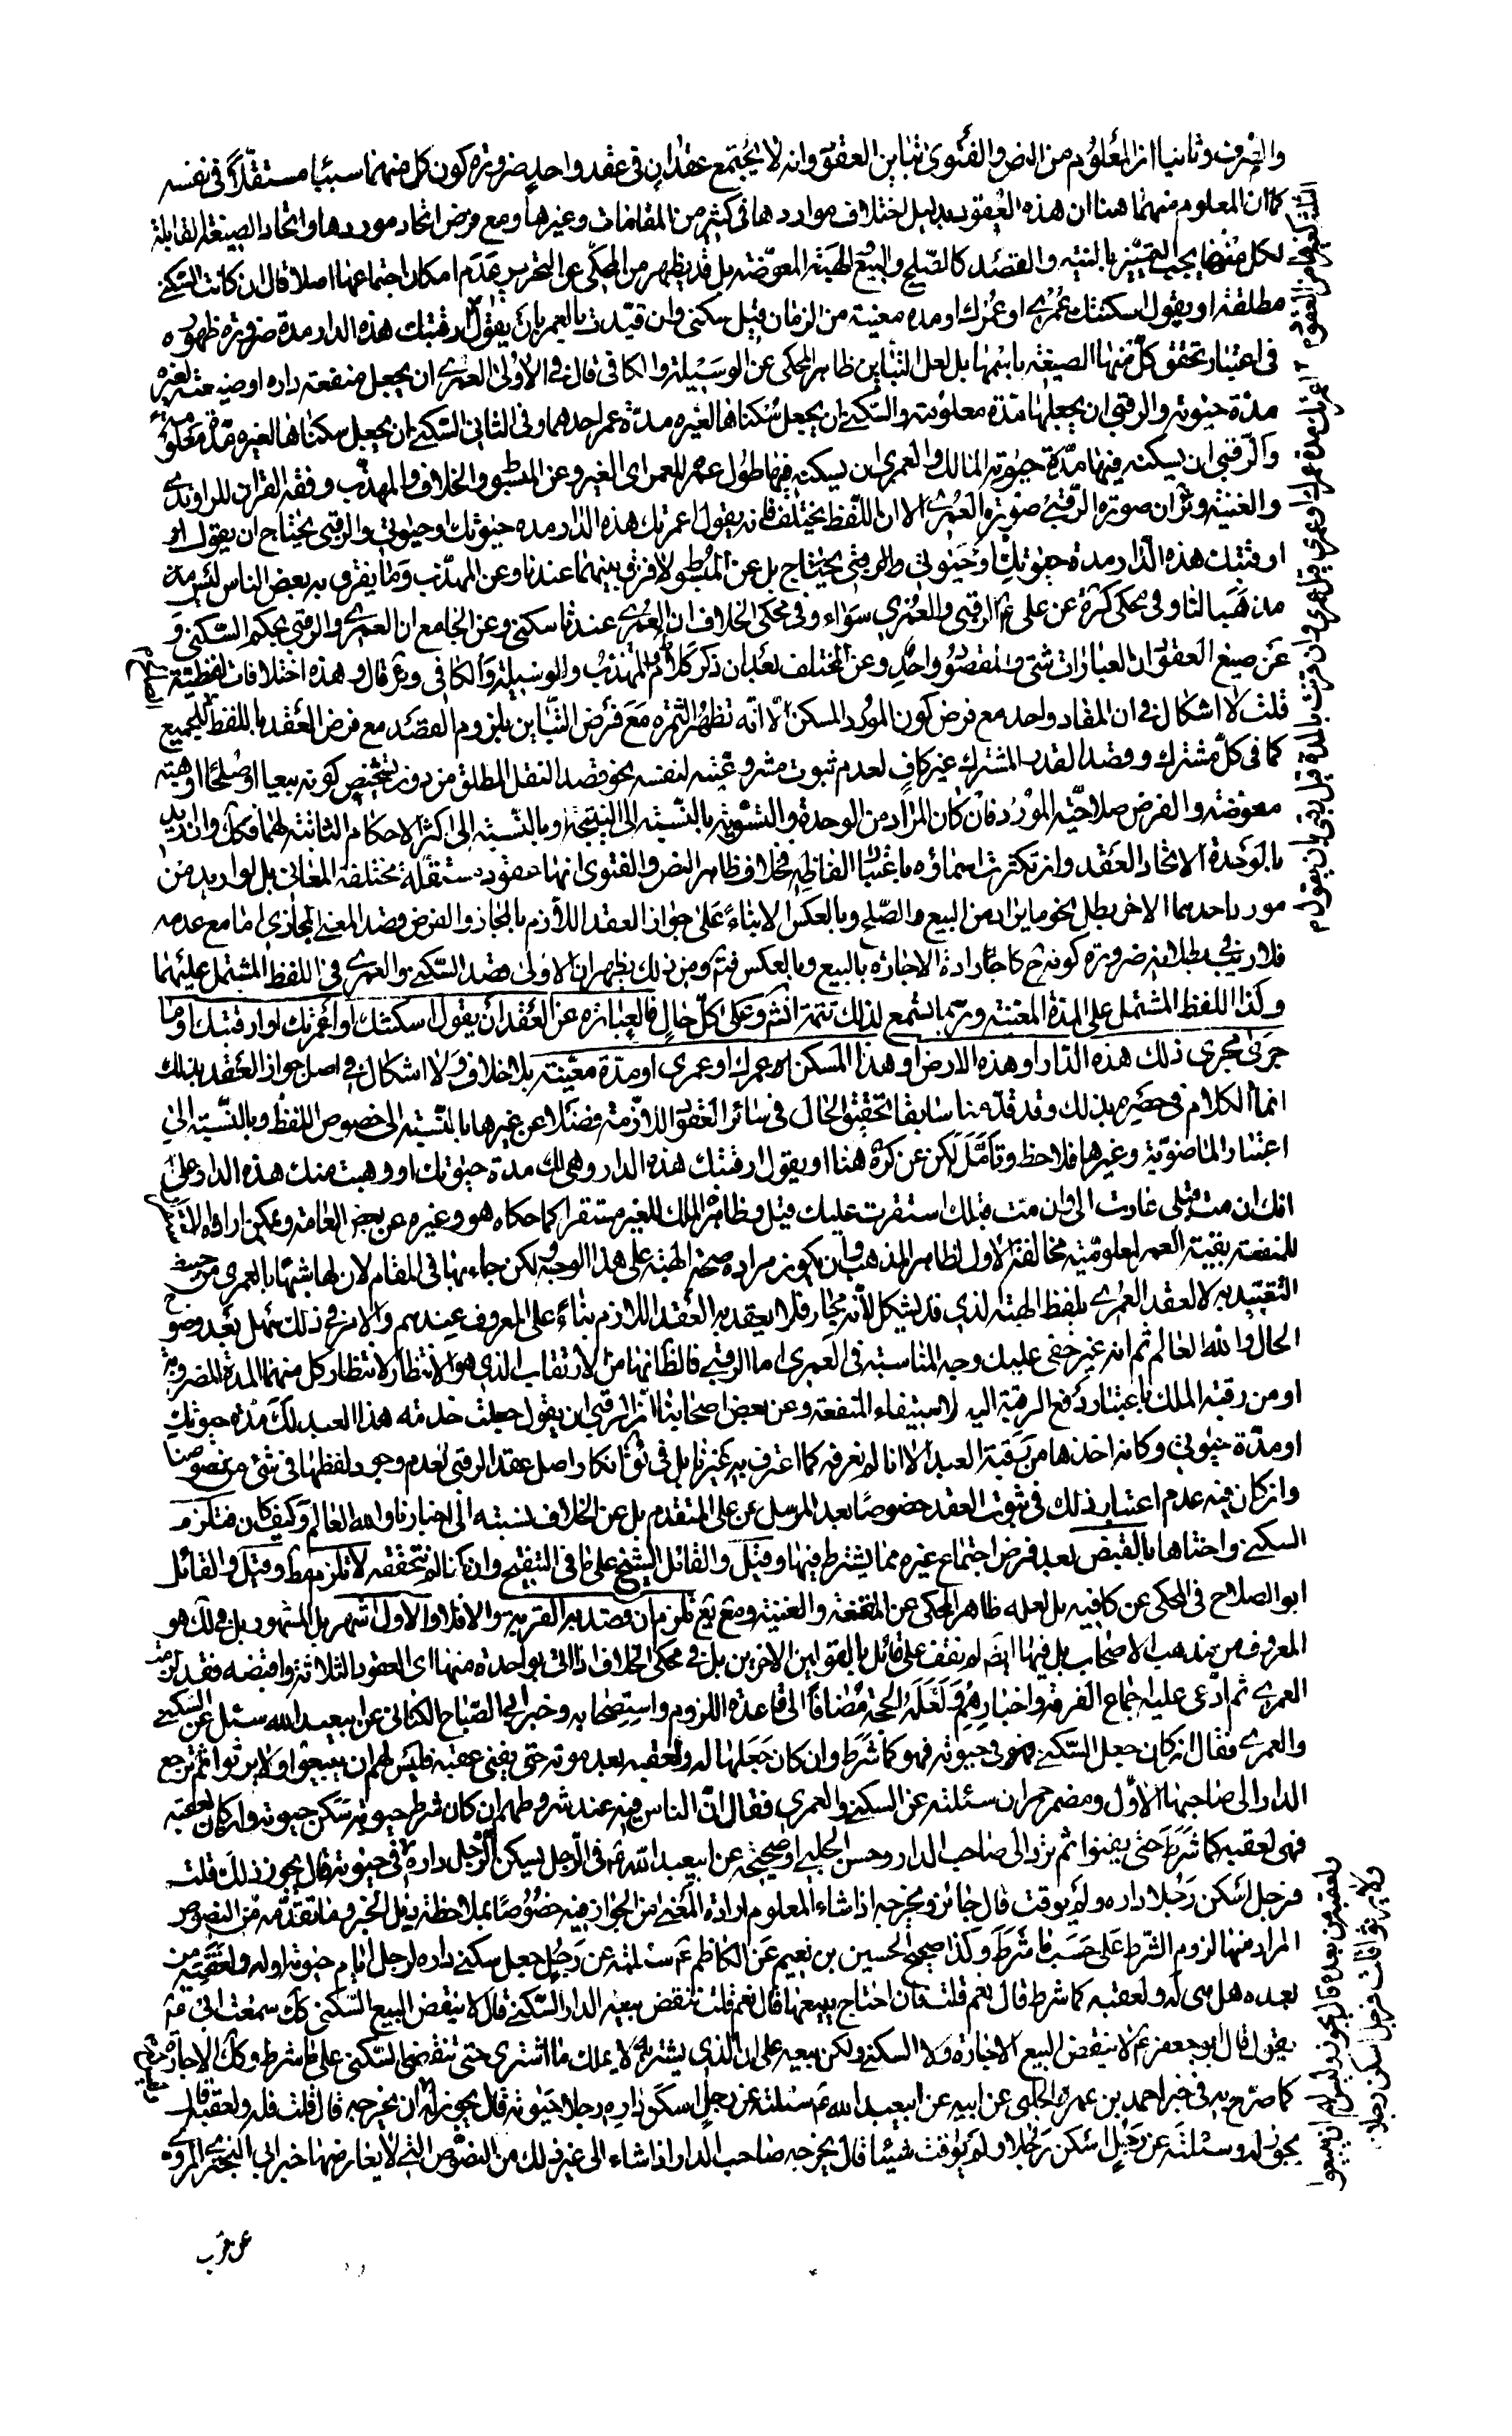 والتصرف وثانيا ان المعلوم من النص والفتوى تباين العقود وانه لا يجتمع عقدان في عقد واحد ضرورة كون كل منهما سببا مستقلا في نفسه
كما ان المعلوم منهما هنا ان هذه العقود بدليل اختلاف مواردها في كثير من المقامات وغيرها ومع فرض اتحاد موردها واتحاد الصيغة القابلة
لكل منها يجب التمييز بالنية والقصد كالصلح والبيع والهبة المعوضة بل قد يظهر من المحكي عن التحرير عدم امكان اجتماعها اصلا قال ان كانت السكنى
مطلقة او يقول اسكنتك عمري او عمرك او مدة معينة من الزمان قيل سكنى وان قيدت بالعمر بان يقول ارقبتك هذه الدار مدة ضرورة ظهوره
في اعتبار تحقق كل منها الصيغة باسمها بل لعل التباين ظاهر المحكي عن الوسيلة والكافي قال في الاولى العمرى ان يجعل منفعة داره او ضيعته لغيره
مدة حيوته والرقبى ان يجعلها مدة معلومة والسكنى ان يجعل سكناها لغيره مدة عمر احدهما وفي الثاني السكنى ان يجعل سكناها لغيره مدة معلومة
والرقبى ان يسكنه فيها مدة حيوة المالك والعمرى ان يسكنه فيها طول عمر المعمر اي الغير وعن المبسوط والخلاف والمهذب وفقه القران للراوندي
والغنية وئر ان صورة الرقبى صورة العمرى الا ان اللفظ يختلف فانه يقول اعمرتك هذه الدار مدة حيوتك او حيوتي والرقبى يحتاج ان يقول
ارقبتك هذه الدار مدة حيوتك او حيوتي والرقبى يحتاج بل عن المبسوط لا فرق بينهما عندنا وعن المهذب وما يفرق به بعض الناس ليس من
مذهبا لنا وفي محكي كره عن علي ع الرقبى والعمرى سواء وفي محكي الخلاف ان العمرى عندنا سكنى وعن الجامع ان العمرى والرقبى بحكم السكنى و
عن صيغ العقود ان العبارات شتى والمقصود واحد وعن المختلف بعد ان ذكر كلام المهذب والوسيلة والكافي وئر قال وهذه اختلافات لفظية
قلت لا اشكال في ان المفاد واحد مع فرض كون المورد المسكن الا انه تظهر الثمرة مع فرض التباين بلزوم القصد مع فرض العقد باللفظ للجميع
كما في كل مشترك وقصد القدر المشترك غير كاف لعدم ثبوت مشروعيته لنفسه نحو قصد النقل المطلق من دون تشخيص كونه بيعا او صلحا او هبة
معوضة والفرض صلاحية المورد فان كان المراد من الوحدة والتسوية بالنسبة الى النتيجة وبالنسبة الى اكثر الاحكام الثابتة لهما فكك وان اريد
بالوحدة الاتحاد العقد وان تكثرت اسماؤه باعتبار الفاظه فخلاف ظاهر النص والفتوى انها عقود مستقلة مختلفة المعاني بل لو اريد من
مورد احدهما الاخر بطل نحو ما يراد من البيع والصلح وبالعكس الا بناء على جواز العقد اللازم بالمجاز والفرض قصد المعنى المجازي اما مع عدمه
فلا ريب في بطلانه ضرورة كونه ح كارادة الاجارة بالبيع وبالعكس فتم ومن ذلك يظهر ان الاولى قصد السكنى والعمرى في اللفظ المشتمل عليهما
وكذا اللفظ المشتمل على المدة المعينة وربما تسمع لذلك تتمة انش وعلى كل حال فالعبارة عن العقد ان يقول اسكنتك او اعمرتك او ارقبتك او ما
جرى مجرى ذلك هذه الدار او هذه الارض او هذا المسكن عمرك او عمري او مدة معينة بلا خلاف ولا اشكال في اصل جواز العقد بذلك
انما الكلام في حصره بذلك وقد قدمنا سابقا تحقيق الحال في سائر العقود اللازمة فضلا عن غيرها بالنسبة الى خصوص اللفظ وبالنسبة الى
اعتبار الماضوية وغيرها فلاحظ وتأمل لكن عن كره هنا او يقول ارقبتك هذه الدار وهي لك مدة حيوتك او وهبت منك هذه الدار على
انك ان مت قبلي عادت الي وان مت قبلك استقرت عليك قيل وظاهر الملك للغير مستقرا كما حكاه هو وغيره عن بعض العامة ويمكن ارادة
للمنفعة بقية العمر لمعلومية مخالفة الاول لظاهر المذهب وان يكون مراده صحة الهبة على هذا الوجه لكن جاء بها في المقام لان لها شبها بالعمرى من حيث
التقييد به لا لعقد العمرى بلفظ الهبة الذي قد يشكل لانه مجاز فلا يعقد به العقد اللازم بناء على المعروف عندهم والامر في ذلك سهل بعد وضوح
الحال والله العالم ثم انه غير خفي عليك وجه المناسبة في العمرى اما الرقبى فالظ انها من الارتقاب الذي هو الانتظار لانتظار كل منهما المدة المضروبة
او من رقبة الملك باعتبار دفع الرقبة اليه لاستيفاء المنفعة وعن بعض اصحابنا ان الرقبى ان يقول جعلت خدمة هذا العبد لك مدة حيوتك
او مدة حيوتي وكانه اخذها من رقبة العبد الا انا لم نعرفه كما اعترف به غيرنا بل في ئر انكار اصل عقد الرقبى لعدم وجود لفظها في شئ من نصوصنا
وان كان فيه عدم اعتبار ذلك في ثبوت العقد خصوصا بعد المرسل عن علي المتقدم بل عن الخلاف نسبته الى اخبارنا والله العالم وكيف كان فتلزم
السكنى واختاها بالقبض بعد فرض اجتماع غيره مما يشترط فيها وقيل والقائل الشيخ على ما في التنقيح وان كنا لم نتحققه لا تلزم مط وقيل والقائل
ابو الصلاح في المحكي عن كافيه بل لعله ظاهر المحكي عن المقنعة والغنية ومع تع تلزم ان قصد به القربة والا فلا والاول اشهر بل المشهور بل في لك هو
المعروف من مذهب الاصحاب بل فيها ايضا لم نقف على قائل بالقولين الاخرين بل في محكي الخلاف اذا اتى بواحدة منها اي العقود الثلاثة واقبضه فقد لزمت
العمرى ثم ادعى عليه اجماع الفرقة واخبارهم ولعله الحجة مضافا الى قاعدة اللزوم واستصحابه وخبر ابي الصباح الكناني عن ابيعبد الله سئل عن السكنى
والعمرى فقال ان كان جعل السكنى في حيوته فهو كما شرط وان كان جعلها له ولعقبه بعد موته حتى يفنى عقبه فليس لهم ان يبيعوا ولا يورثوا ثم ترجع
الدار الى صاحبها الاول ومضمر حمران سئلته عن السكنى والعمرى فقال ان الناس فيه عند شروطهم ان كان شرط حيوته سكن حيوته وان كان لعقبه
فهو لعقبه كما شرط حتى يفنوا ثم ترد الى صاحب الدار وحسن الحلبي او صحيحه عن ابيعبد الله ع في الرجل يسكن الرجل داره في حيوته قال يجوز ذلك قلت
فرجل اسكن رجلا داره ولم يوقت قال جائز ويخرجه اذا شاء المعلوم ارادة المعنى من الجواز فيه خصوصا بملاحظة ذيل الخبر وما تقدمه من النصوص
المراد منها لزوم الشرط على حسب ما شرط وكذا صحيح الحسين بن نعيم عن الكاظم ع سئلته عن رجل جعل سكنى داره لرجل ايام حيوته او له ولعقبه من
بعده هل هي له ولعقبه كما شرط قال نعم قلت فان احتاج يبيعها قال نعم قلت فينقض بيعه الدار السكنى قال لا ينقض البيع السكنى كك سمعت ابي ع
يقول قال ابو جعفر ع لا ينقض البيع الاجارة ولا السكنى ولكن يبيعه على ان الذي يشتريه لا يملك ما اشترى حتى تنقضي السكنى على ما شرط وكك الاجارة
كما صرح به في خبر احمد بن عمر الحلبي عن ابيه عن ابيعبد الله ع سئلته عن رجل اسكن داره رجلا حيوته قال يجوز له وليس له ان يخرجه قال قلت فله ولعقبه قال
يجوز له وسئلته عن رجل اسكن رجلا ولم يوقت شيئا قال يخرجه صاحب الدار اذا شاء الى غير ذلك من النصوص التي لا يعارضها خبر ابي البختري المروي
ولعقبه من بعده قال يجوز وليس لهم ان يبيعوا
ولا يورثوا قلت فرجل اسكن رجلا
عن قرب